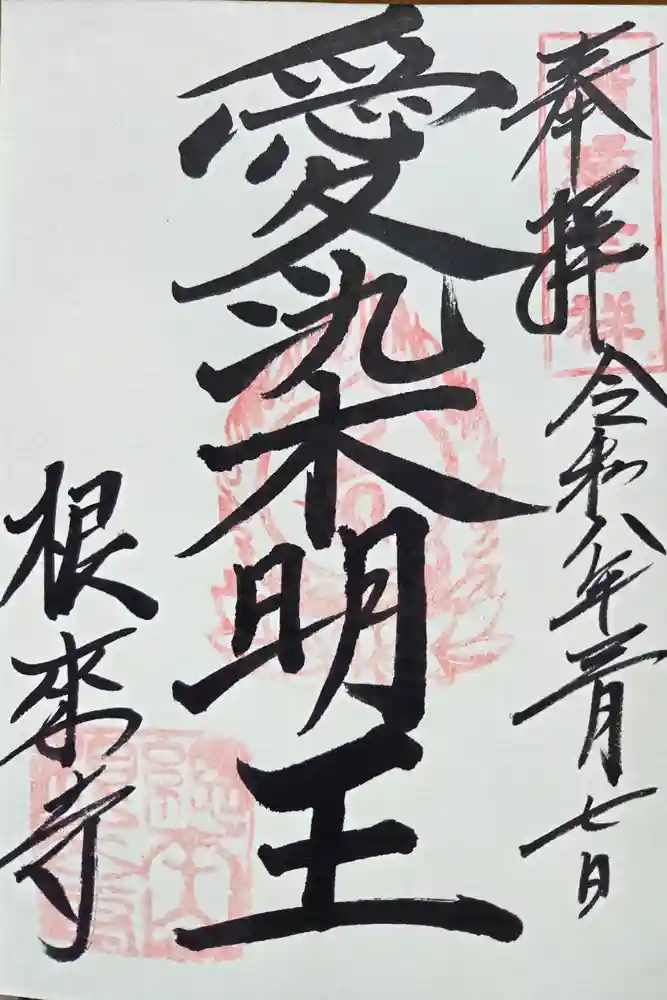 奉拝
令和八年三月七日
愛染明王
根來寺